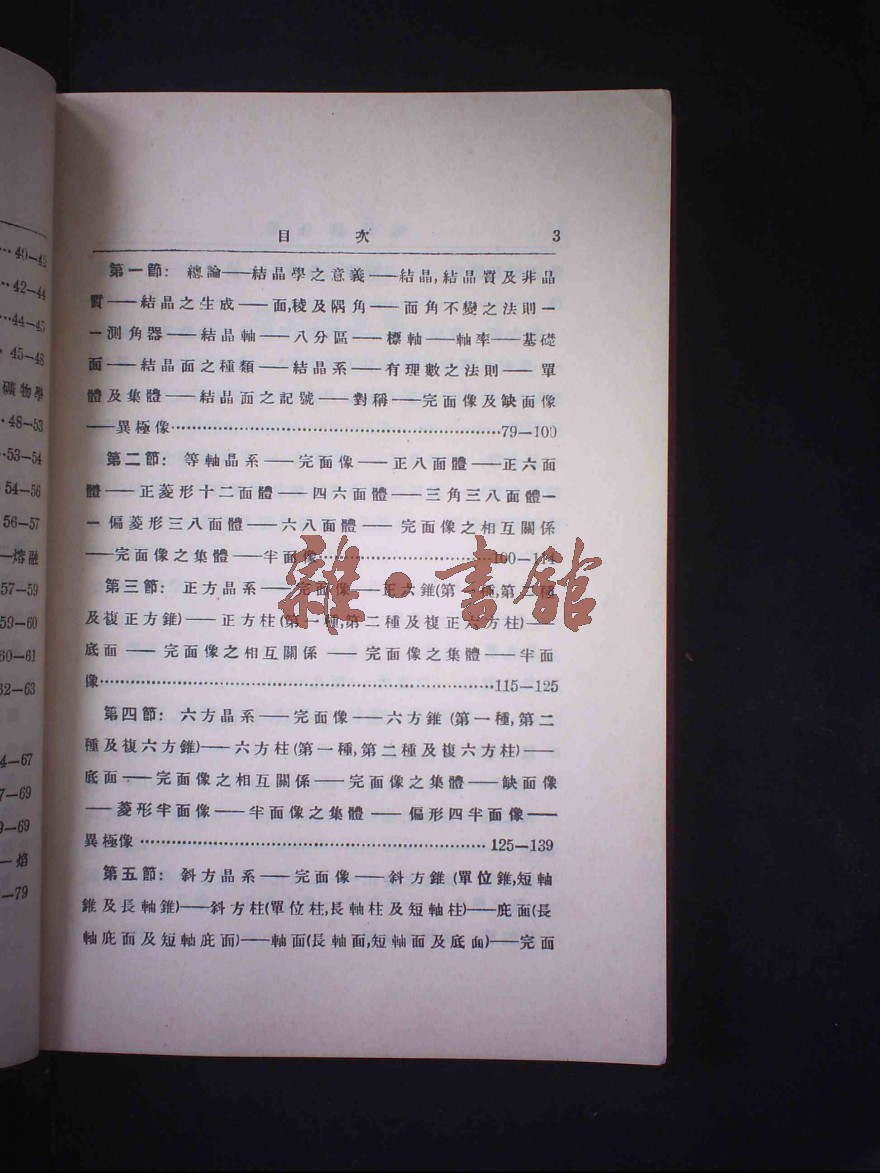 40—42
42—44
44—45
45—48
礦物學
48—53
53—54
54—56
56—57
—熔融
57—59
59—60
60—61
62—63
4—67
7—69
9—69
—焰
—79
目 次 3
第一節: 總論——結晶學之意義——結晶,結晶質及非晶
質——結晶之生成——面,稜及隅角——面角不變之法則—
—測角器——結晶軸——八分區——標軸——軸率——基礎
面——結晶面之種類——結晶系——有理數之法則——單
體及集體——結晶面之記號——對稱——完面像及缺面像
——異極像…………79—100
第二節: 等軸晶系——完面像——正八面體——正六面
體——正菱形十二面體——四六面體——三角三八面體—
—偏菱形三八面體——六八面體——完面像之相互關係
——完面像之集體——半面像…………100—114
第三節: 正方晶系——完面像——正六錐(第一種,第二種
及複正方錐)——正方柱(第一種,第二種及複正六方柱)——
底面——完面像之相互關係——完面像之集體——半面
像…………115—125
第四節: 六方晶系——完面像——六方錐(第一種,第二
種及複六方錐)——六方柱(第一種,第二種及複六方柱)——
底面——完面像之相互關係——完面像之集體——缺面像
——菱形半面像——半面像之集體——偏形四半面像——
異極像…………125—139
第五節: 斜方晶系——完面像——斜方錐(單位錐,短軸
錐及長軸錐)——斜方柱(單位柱,長軸柱及短軸柱)——庇面(長
軸庇面及短軸庇面)——軸面(長軸面,短軸面及底面)——完面
雜·書館